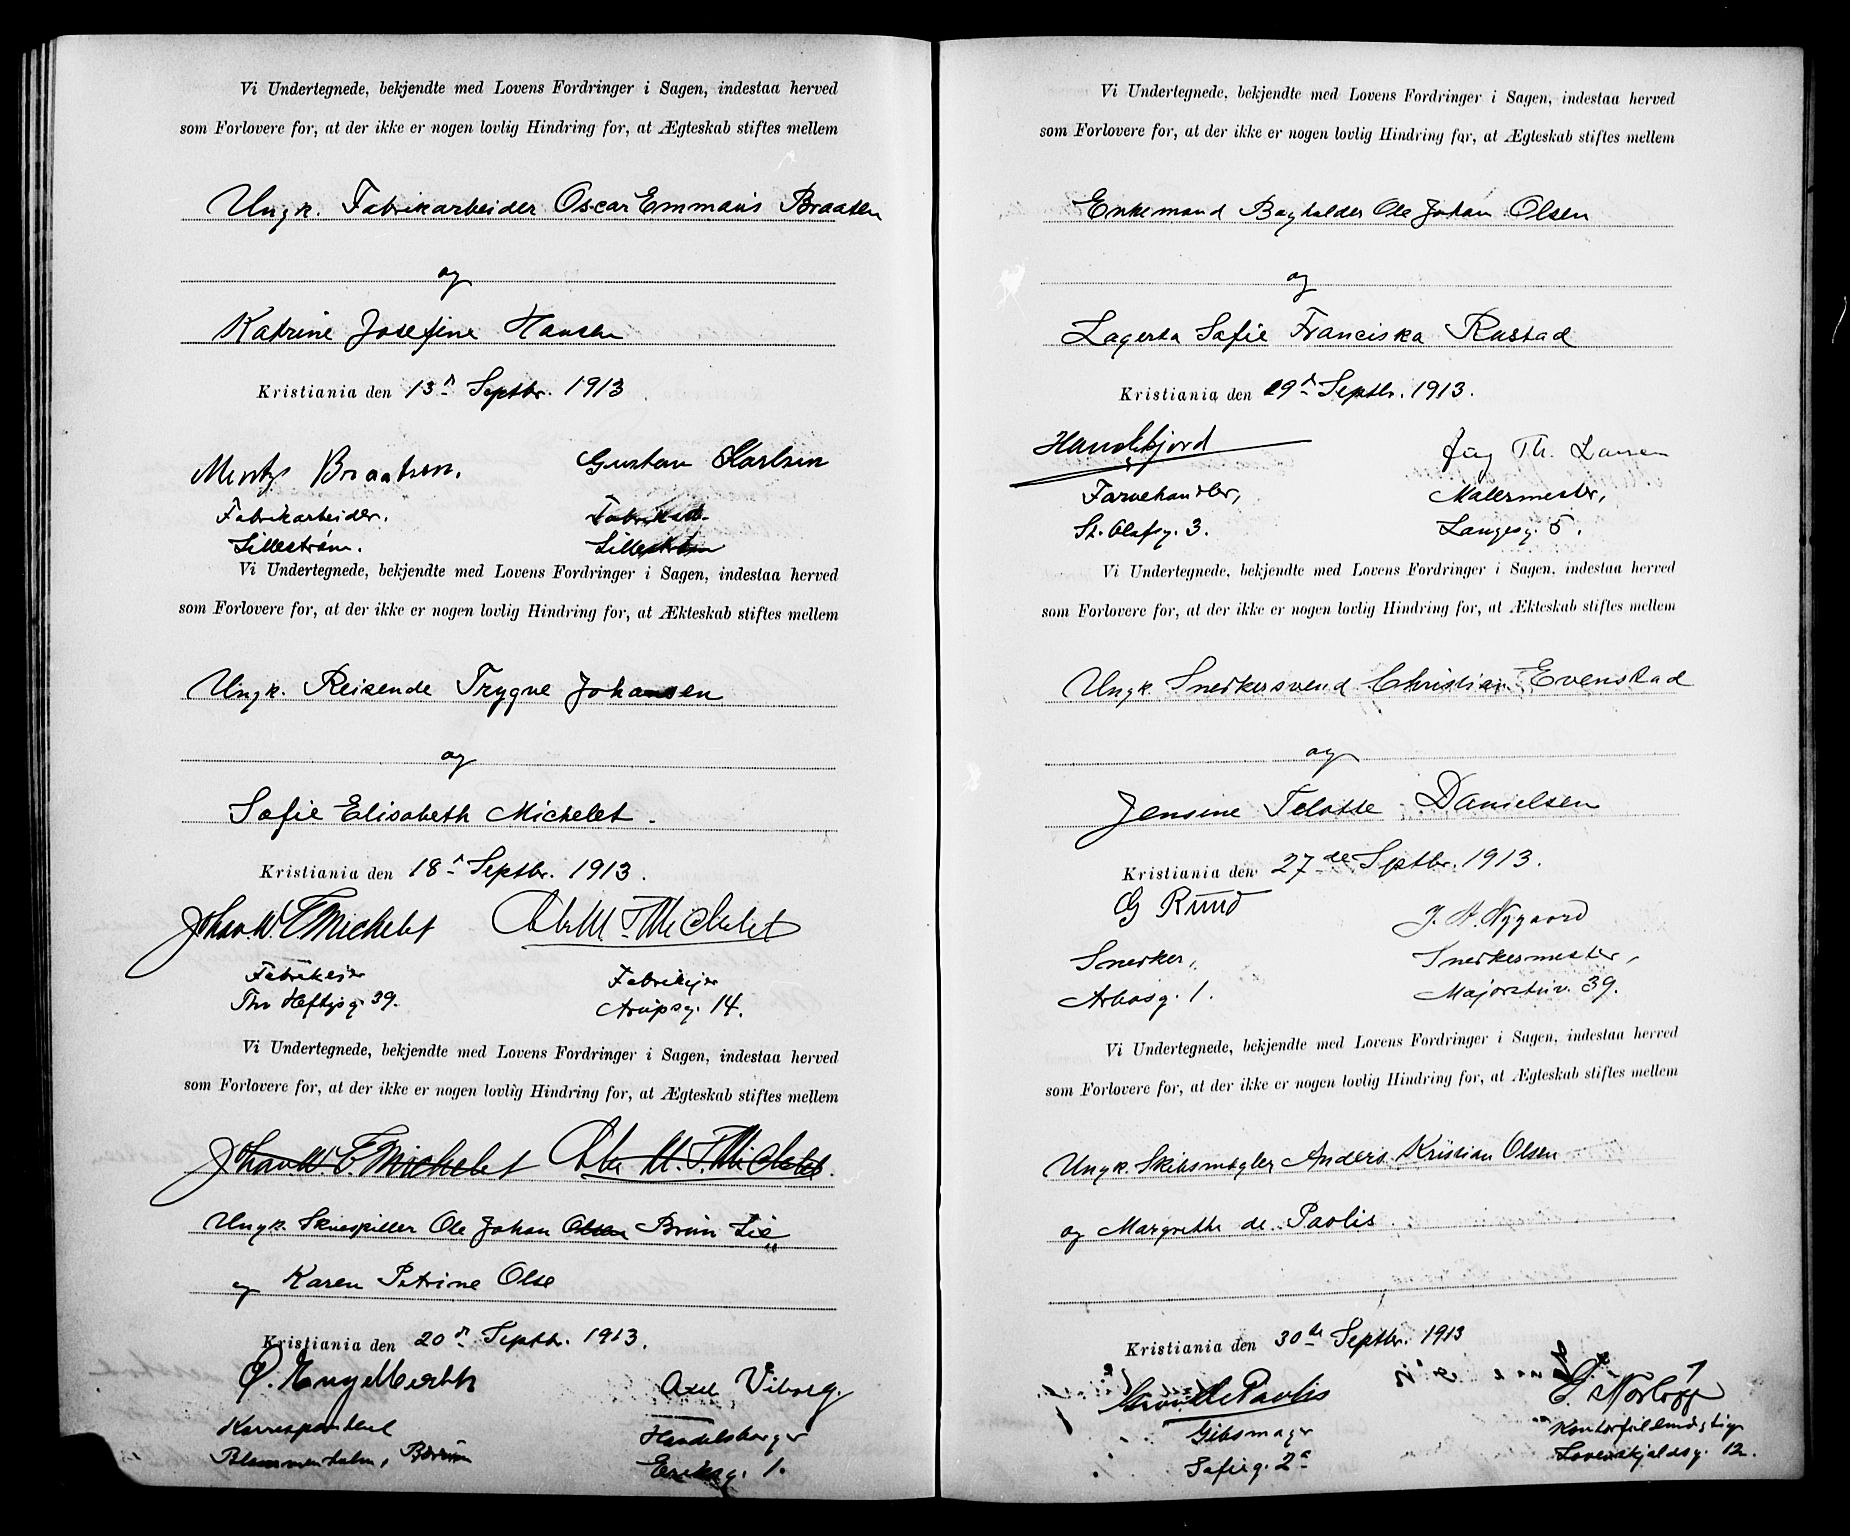 Vi Undertegnede, bekjendte med Lovens Fordringer i Sagen, indestaa herved
som Forlovere for, at der ikke er nogen lovlig Hindring for, at Ægteskab stiftes mellem
Ungk. Fabrikarbeider Oscar Emmaus Braaten
og
Katrine Josefine Hansen
Kristiania den 13d Septbr. 1913
Mentz Braatsen. Gustav Karlsen
Fabrikarbeider. Fabrikarb.
Lillestrøm. Lillestrøm
Vi Undertegnede, bekjendte med Lovens Fordringer i Sagen, indestaa herved
som Forlovere for, at der ikke er nogen lovlig Hindring for, at Ækteskab stiftes mellem
Ungk. Reisende Trygve Johansen
og
Sofie Elisabeth Michelet.
Kristiania den 18d Septbr. 1913.
Johan W. F. Michelet M. F. Michelet
Fabrikeier Fabrikejer
Tho Heftysg 39. Arupsg. 14.
Vi Undertegnede, bekjendte med Lovens Fordringer i Sagen, indestaa herved
som Forlovere for, at der ikke er nogen lovlig Hindring for, at Ægteskab stiftes mellem
Johan W. F. Michelet M. F. Michelet.
Ungk. Skuespiller Ole Johan Olsen Brun Lie
og Karen Petrine Olse
Kristiania den 20d Septbr. 1913.
Ø. Engelberth Axel Viborg.
Korrespondent Handelsborger
Blommenholm, Bærum Eriksg. 1.
Vi Undertegnede, bekjendte med Lovens Fordringer i Sagen, indestaa herved
som Forlovere for, at der ikke er nogen lovlig Hindring for, at Ægteskab stiftes mellem
Enkemand Bogholder Ole Johan Olsen
og
Lagerta Sofie Franciska Rustad
Kristiania den 19d Septbr. 1913.
Th. Larsen
Farvehandler, Malermester,
St. Olafsg. 3. Langesg. 5.
Vi Undertegnede, bekjendte med Lovens Fordringer i Sagen, indestaa herved
som Forlovere for, at der ikke er nogen lovlig Hindring for, at Ækteskab stiftes mellem
Ungk. Snedkersvend Christian Evenstad
og
Jensine Telotte Danielsen
Kristiania den 27de Septbr. 1913.
G Ruud J. A. Nygaard
Snedker, Snedkermester,
Arbosg. 1. Majorstuv. 39.
Vi Undertegnede, bekjendte med Lovens Fordringer i Sagen, indestaa herved
som Forlovere for, at der ikke er nogen lovlig Hindring for, at Ægteskab stiftes mellem
Ungk. Skibsmægler Anders Kristian Olsen
og Margrethe de Paolis.
Kristiania den 30te Septbr. 1913
de Paolis
Gibsmager Kontorfuldmægtig
Sofieg. 2a Løvenskjoldsg. 12.